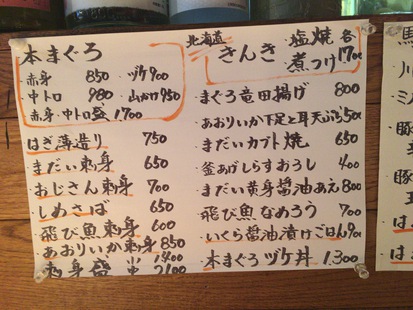 本まぐろ
・赤身 850 ・ヅケ900
・中トロ 980 ・山かけ950
・赤身・中トロ盛 1700
・はぎ薄造り 750
・まだい刺身 650
・おじさん刺身 700
・しめさば 650
・飛び魚刺身 600
・あおりいか刺身 850
・刺身盛 半 1400
2100
北海道
きんき ・塩焼 各
・煮つけ 1700
・まぐろ竜田揚げ 800
・あおりいか下足と耳天ぷら 500
・まだいカブト焼 650
・釜あげしらすおろし 400
・まだい黄身醤油あえ 800
・飛び魚なめろう 700
・いくら醤油漬けごはん 900
・本まぐろヅケ丼 1.300
馬
・川
・ミ
・豚
・豚
・は
・は